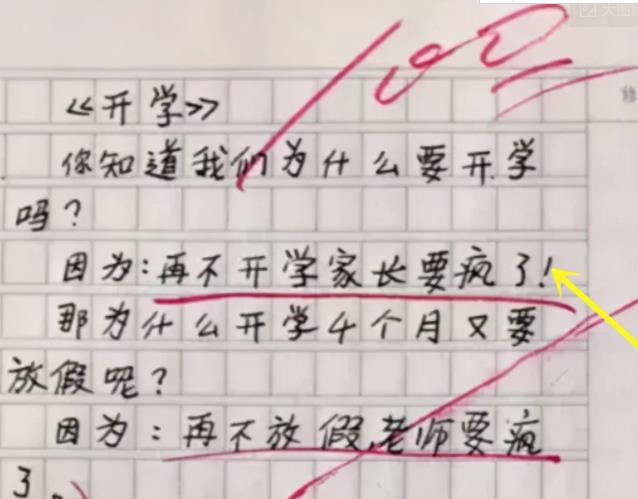 100
《开学》
你知道我们为什么要开学
吗？
因为：再不开学家长要疯了！
那为什么开学4个月又要
放假呢？
因为：再不放假，老师要疯
了。